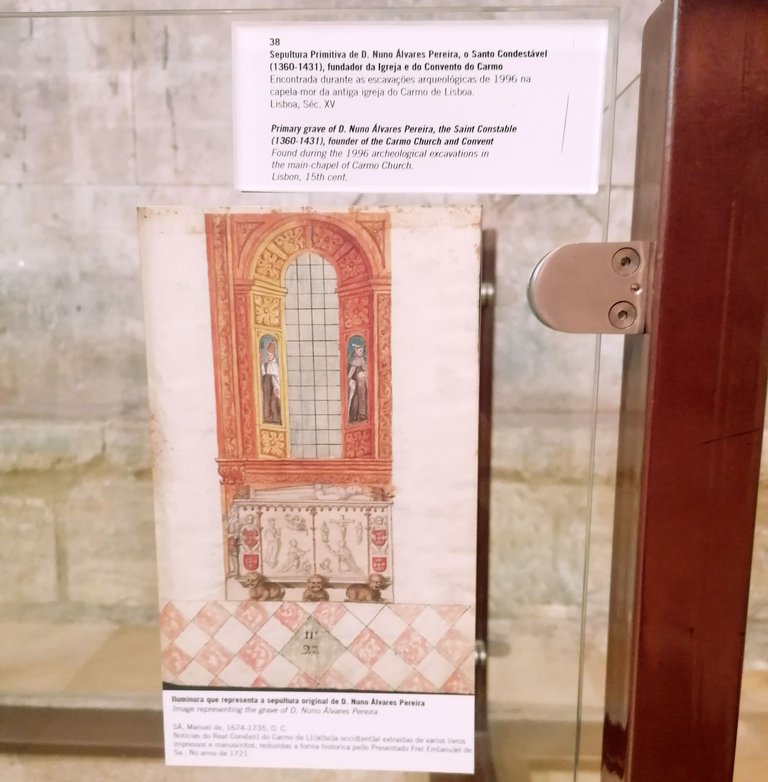 38
Sepultura Primitiva de D. Nuno Álvares Pereira, o Santo Condestável
(1360-1431), fundador da Igreja e do Convento do Carmo
Encontrada durante as escavações arqueológicas de 1996 na
capela-mor da antiga igreja do Carmo de Lisboa.
Lisboa, Séc. XV
Primary grave of D. Nuno Álvares Pereira, the Saint Constable
(1360-1431), founder of the Carmo Church and Convent
Found during the 1996 archeological excavations in
the main-chapel of Carmo Church.
Lisbon, 15th cent.
nº
22
Iluminura que representa a sepultura original de D. Nuno Álvares Pereira
Image representing the grave of D. Nuno Álvares Pereira
SÁ, Manuel de, 1674-1735, O. C.
Noticias do Real Conv[en] do Carmo de L[i]x[bo]a occid[ent]al extraidas de varios livros
impressos e manuscritos, reduzidas a forma historica pello Presentado Frei Em[anu]el de
Sa . No anno de 1721.